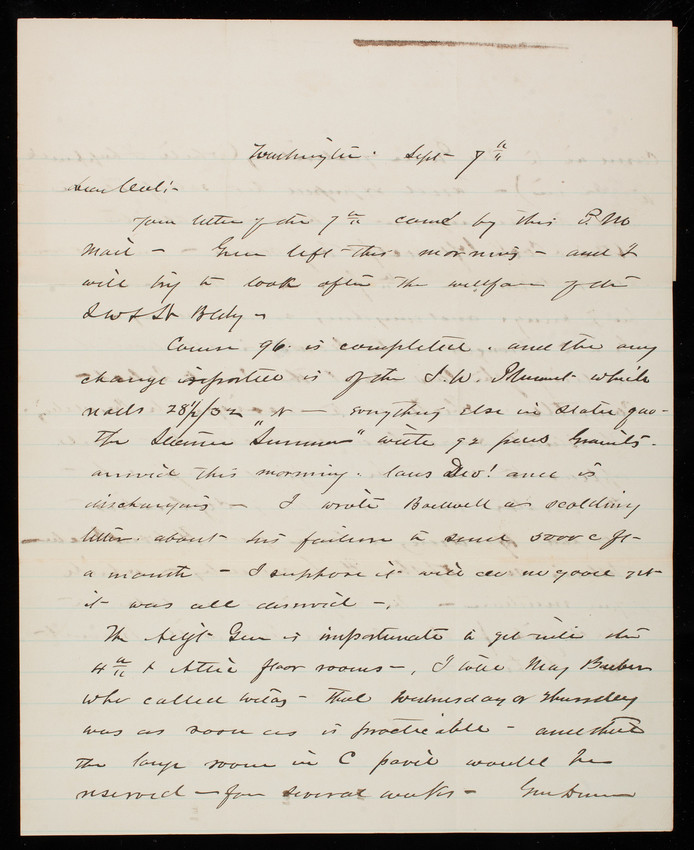 Washington Sept 7th
Dear Col:-
Your letter of the 7th came by this P.M
mail - Green left this morning - and I
will try to look after the welfare of the
S W & N Bldg -
Course 96 is completed. and the only
change reported is of the S.W. which
reads 28 1/2/32 - everything else in statu quo -
the Steamer "Sumner" with 92 pcs Granite -
arrived this morning. laus Deo! and is
discharging - I wrote Bodwell a scalding
letter about his failure to send 5000 c ft
a month - I suppose it will do no good yet
it was all deserved -
The Adjt Gen is importunate to get into the
4th & Attic floor rooms -, I told Maj Barber
who called today - that Wednesday or Thursday
was as soon as is practicable - and that
the large room in C pavil would be
reserved - for several weeks - Gen